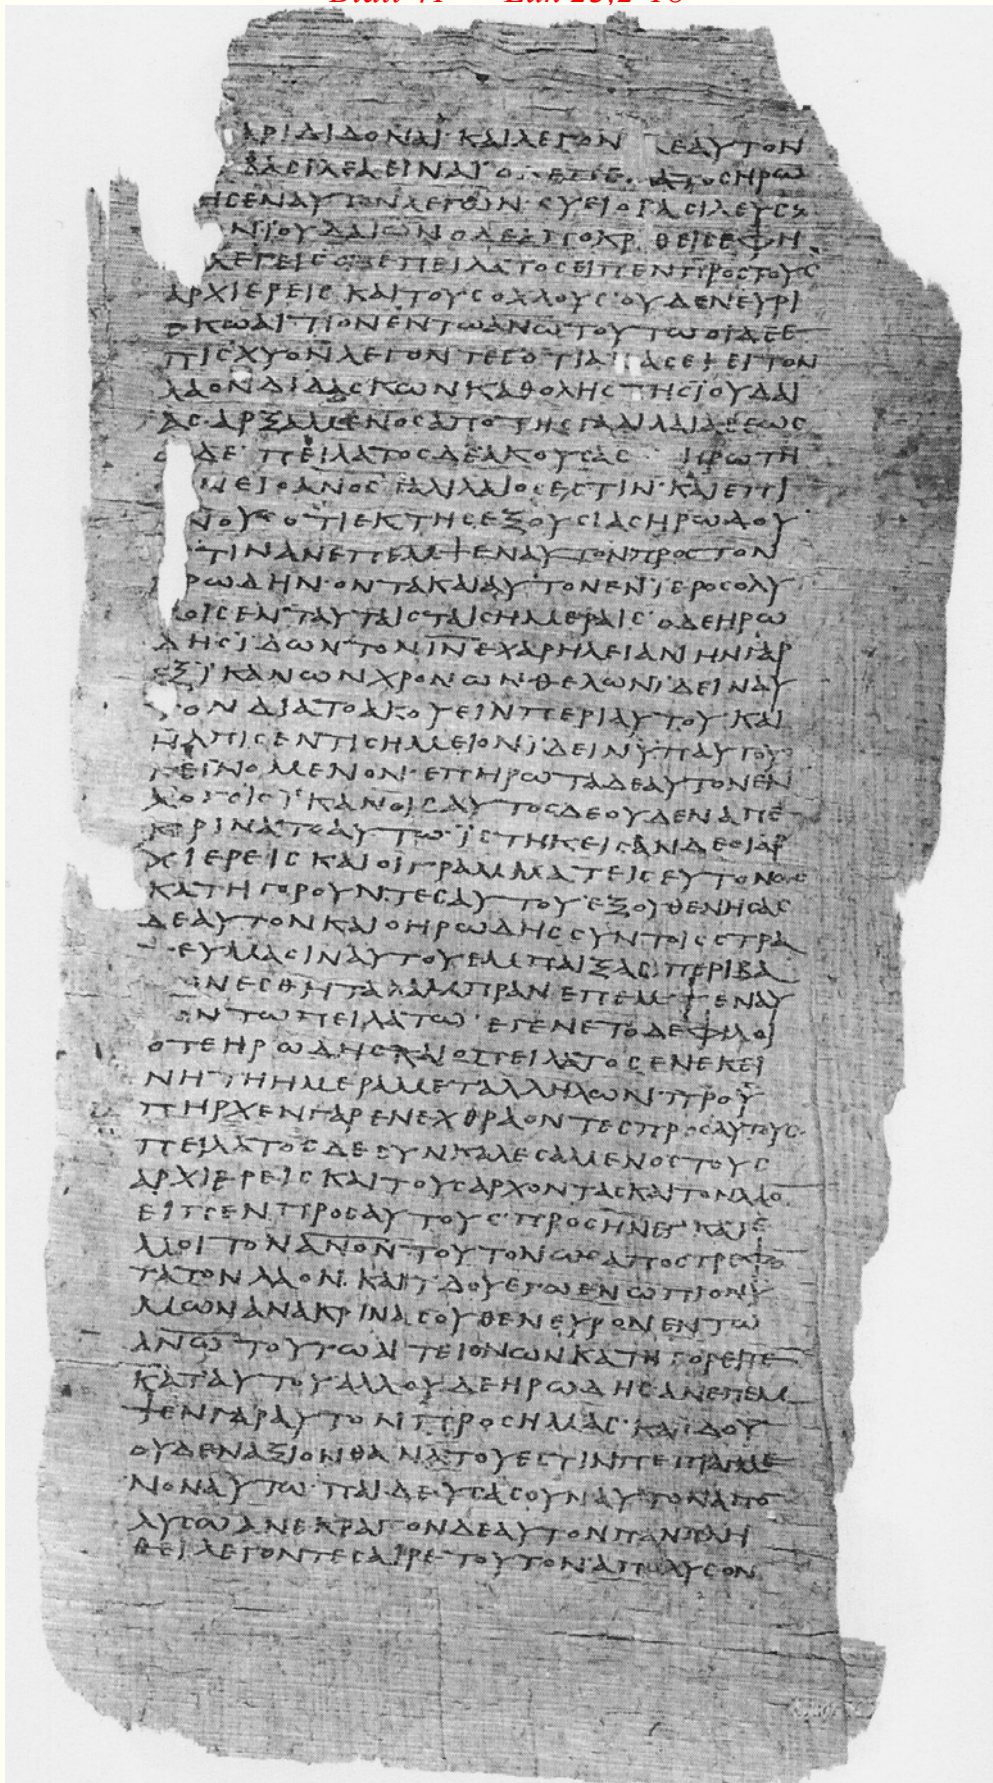 ΚΑΙ ΛΕΓΟΝ ΕΑΥΤΟΝ
ΒΑΣΙΛΕΑ ΕΙΝΑΙ
ΕΝ ΑΥΤΟΝ ΛΕΓΩΝ ΣΥ ΕΙ Ο ΒΑΣΙΛΕΥΣ
ΙΟΥΔΑΙΩΝ Ο ΔΕ
ΛΕΓΕΙΣ ΠΕΙΛΑΤΟΣ ΕΙΠΕΝ ΠΡΟΣ ΤΟΥΣ
ΑΡΧΙΕΡΕΙΣ ΚΑΙ ΤΟΥΣ ΟΧΛΟΥΣ ΟΥΔΕΝ ΕΥΡΙ
ΣΚΩ ΑΙΤΙΟΝ ΕΝ ΤΩ ΑΝΩ ΤΟΥΤΩ ΟΙ ΔΕ Ε
ΠΙΣΧΥΟΝ ΛΕΓΟΝΤΕΣ ΟΤΙ ΤΟΝ
ΛΑΟΝ ΔΙΔΑΣΚΩΝ ΚΑΘ ΟΛΗΣ ΤΗΣ ΙΟΥΔΑΙ
ΑΣ ΑΡΞΑΜΕΝΟΣ ΑΠΟ ΤΗΣ ΕΩΣ
ΩΔΕ ΠΕΙΛΑΤΟΣ ΔΕ ΑΚΟΥΣΑΣ
Ο ΑΝΟΣ ΓΑΛΙΛΑΙΟΣ ΕΣΤΙΝ ΚΑΙ ΕΠΙ
ΓΝΟΥΣ ΟΤΙ ΕΚ ΤΗΣ ΕΞΟΥΣΙΑΣ ΗΡΩΔΟΥ
ΑΝΕΠΕΜΨΕΝ ΑΥΤΟΝ ΠΡΟΣ ΤΟΝ
ΗΡΩΔΗΝ ΟΝΤΑ ΚΑΙ ΑΥΤΟΝ ΕΝ ΙΕΡΟΣΟΛΥ
ΜΟΙΣ ΕΝ ΤΑΥΤΑΙΣ ΤΑΙΣ ΗΜΕΡΑΙΣ Ο ΔΕ ΗΡΩ
ΔΗΣ ΙΔΩΝ ΤΟΝ ΙΝ ΕΧΑΡΗ ΛΕΙΑΝ ΗΝ ΓΑΡ
ΕΞ ΙΚΑΝΩΝ ΧΡΟΝΩΝ ΘΕΛΩΝ ΙΔΕΙΝ ΑΥ
ΤΟΝ ΔΙΑ ΤΟ ΑΚΟΥΕΙΝ ΠΕΡΙ ΑΥΤΟΥ ΚΑΙ
ΗΛΠΙΣΕΝ ΤΙ ΣΗΜΕΙΟΝ ΙΔΕΙΝ ΥΠ ΑΥΤΟΥ
ΓΕΙΝΟΜΕΝΟΝ ΕΠΗΡΩΤΑ ΔΕ ΑΥΤΟΝ ΕΝ
ΛΟΓΟΙΣ ΙΚΑΝΟΙΣ ΑΥΤΟΣ ΔΕ ΟΥΔΕΝ ΑΠΕ
ΚΡΙΝΑΤΟ ΑΥΤΩ ΙΣΤΗΚΕΙΣΑΝ ΔΕ ΟΙ ΑΡ
ΧΙΕΡΕΙΣ ΚΑΙ ΟΙ ΓΡΑΜΜΑΤΕΙΣ ΕΥΤΟΝΩΣ
ΚΑΤΗΓΟΡΟΥΝΤΕΣ ΑΥΤΟΥ ΕΞΟΥΘΕΝΗΣΑΣ
ΔΕ ΑΥΤΟΝ ΚΑΙ Ο ΗΡΩΔΗΣ ΣΥΝ ΤΟΙΣ ΣΤΡΑ
ΤΕΥΜΑΣΙΝ ΑΥΤΟΥ ΕΜΠΑΙΞΑΣ ΠΕΡΙΒΑ
ΕΣΘΗΤΑ ΛΑΜΠΡΑΝ ΕΠΕΜΨΕΝ ΑΥ
ΤΟΝ ΤΩ ΠΕΙΛΑΤΩ ΕΓΕΝΕΤΟ ΔΕ ΦΙΛΟΙ
Ο ΤΕ ΗΡΩΔΗΣ ΚΑΙ Ο ΠΕΙΛΑΤΟΣ ΕΝ ΕΚΕΙ
ΝΗ ΤΗ ΗΜΕΡΑ ΜΕΤ ΑΛΛΗΛΩΝ ΠΡΟΥ
ΠΗΡΧΕΝ ΓΑΡ ΕΝ ΕΧΘΡΑ ΟΝΤΕΣ ΠΡΟΣ ΑΥΤΟΥΣ
ΠΕΙΛΑΤΟΣ ΔΕ ΣΥΝΚΑΛΕΣΑΜΕΝΟΣ ΤΟΥΣ
ΑΡΧΙΕΡΕΙΣ ΚΑΙ ΤΟΥΣ ΑΡΧΟΝΤΑΣ ΚΑΙ ΤΟΝ ΛΑΟ
ΕΙΠΕΝ ΠΡΟΣ ΑΥΤΟΥΣ ΠΡΟΣΗΝΕΓΚΑΤΕ
ΜΟΙ ΤΟΝ ΑΝΟΝ ΤΟΥΤΟΝ ΩΣ ΑΠΟΣΤΡΕΦΟ
ΤΑ ΤΟΝ ΛΑΟΝ ΚΑΙ ΙΔΟΥ ΕΓΩ ΕΝΩΠΙΟΝ Υ
ΜΩΝ ΑΝΑΚΡΙΝΑΣ ΟΥΘΕΝ ΕΥΡΟΝ ΕΝ ΤΩ
ΑΝΩ ΤΟΥΤΩ ΑΙΤΕΙΟΝ ΩΝ ΚΑΤΗΓΟΡΕΙΤΕ
ΚΑΤ ΑΥΤΟΥ ΑΛΛ ΟΥΔΕ ΗΡΩΔΗΣ ΑΝΕΠΕΜ
ΨΕΝ ΓΑΡ ΑΥΤΟΝ ΠΡΟΣ ΗΜΑΣ ΚΑΙ ΙΔΟΥ
ΟΥΔΕΝ ΑΞΙΟΝ ΘΑΝΑΤΟΥ ΕΣΤΙΝ ΠΕΠΡΑΓΜΕ
ΝΟΝ ΑΥΤΩ ΠΑΙΔΕΥΣΑΣ ΟΥΝ ΑΥΤΟΝ ΑΠΟ
ΛΥΣΩ ΑΝΕΚΡΑΓΟΝ ΔΕ ΑΥΤΟΝ ΠΑΝΠΛΗ
ΘΕΙ ΛΕΓΟΝΤΕΣ ΑΙΡΕ ΤΟΥΤΟΝ ΑΠΟΛΥΣΟΝ